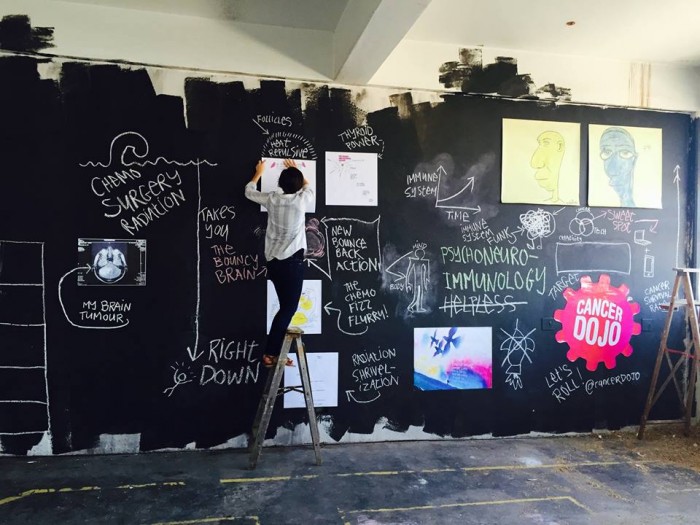 FOLLICLES
HEAT
REPULSIVE
THYROID
POWER
CHEMO
SURGERY
RADIATION
TAKES
YOU
THE
BOUNCY
BRAIN
MY BRAIN
TUMOUR
RIGHT
DOWN
NEW
BOUNCE
BACK
ACTION
THE
CHEMO
FIZZ
FLURRY!
RADIATION
SHRIVEL-
IZATION
IMMUNE
SYSTEM
TIME
IMMUNE
SYSTEM
FUNK
MIND
BODY
PSYCHONEURO-
IMMUNOLOGY
HELPLESS
CREATIVE
TECH
SWEET
SPOT
TARGET
CANCER
DOJO
CANCER
SURVIVAL
LET'S
ROLL!
@CANCERDOJO